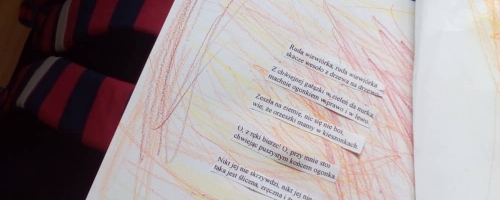 Ruda wiewiórka, ruda wiewiórka
skacze wesoło z drzewa na drzewo,
Z chwiejnej gałązki w zieleń da nurka,
machnie ogonkiem w prawo i w lewo.
Zeszła na ziemię, nic się nie boi,
wie, że orzeszki mamy w kieszonkach
O, z ręki bierze! O, przy mnie stoi
chwiejąc puszystym końcem ogonka.
Nikt jej nie skrzywdzi, nikt jej nie
taka jest śliczna, zręczna i